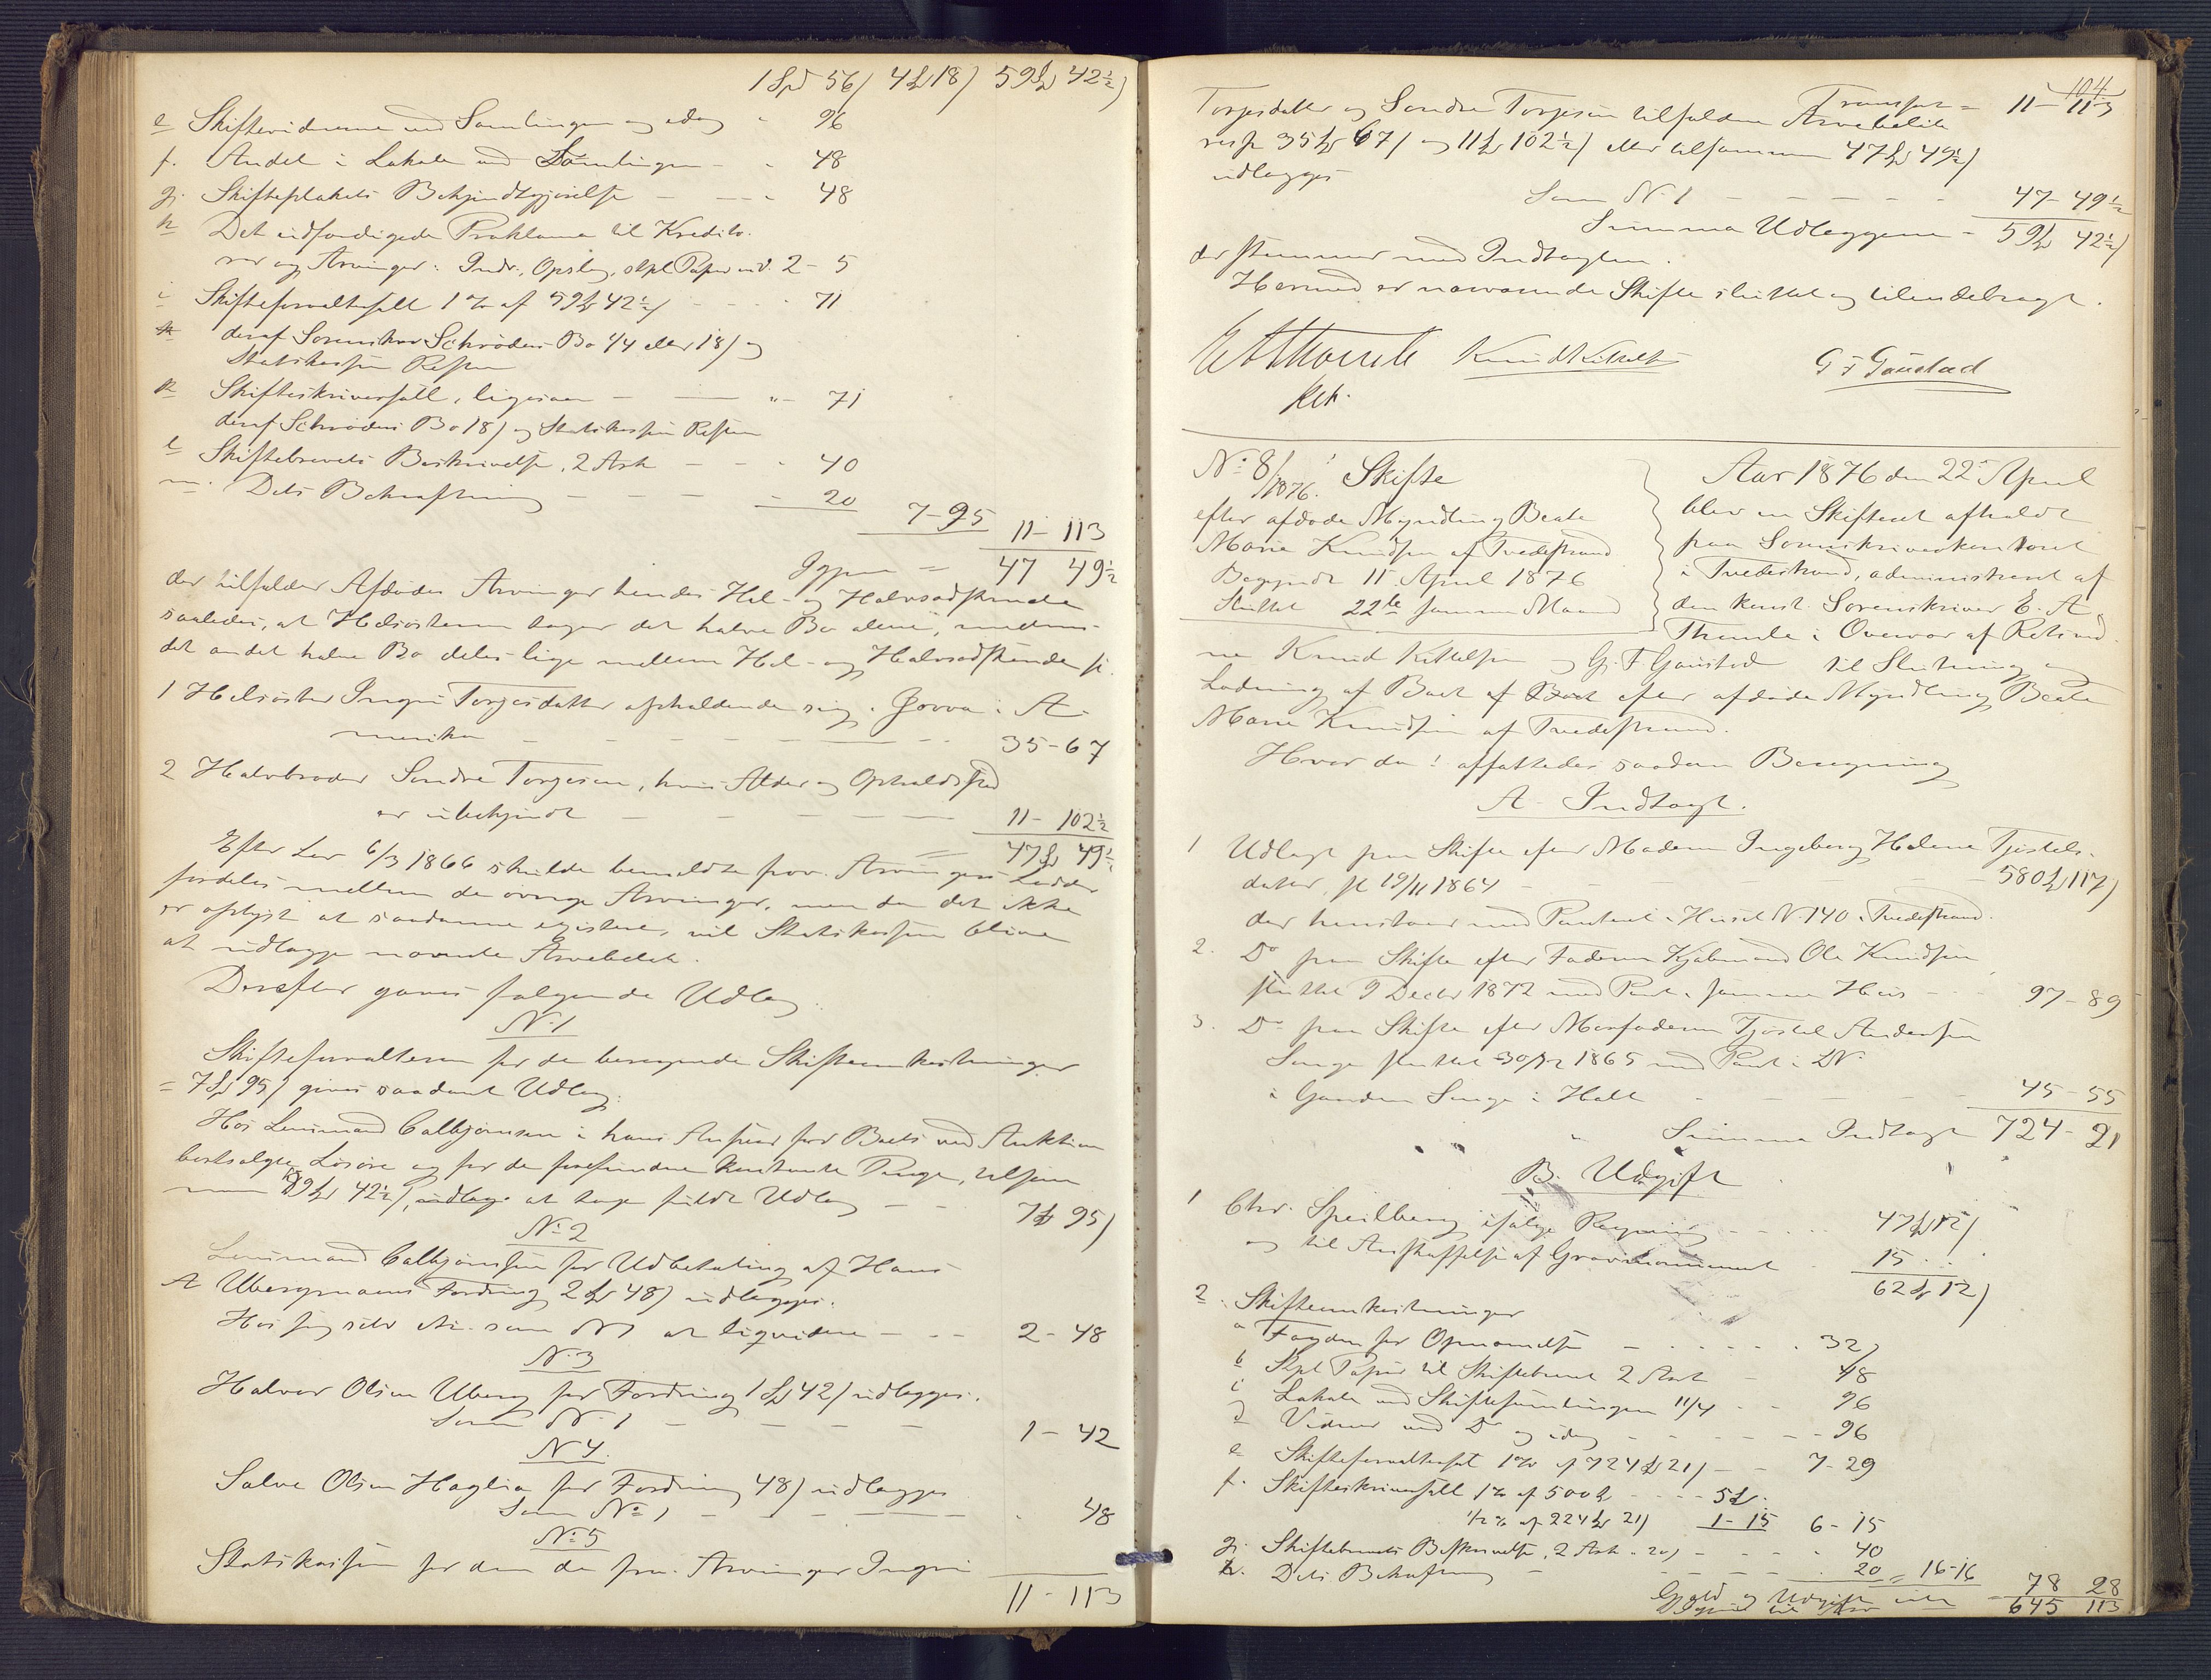 1 Spd 56/ 4 Spd 18/ 59 Spd 42½/
e Skiftevidnerne ved Samlingen og idag - 96
f. Andel i Lokale ved Samlingen - - 48
g. Skifteplakats Bekjendtgjørelse - - - 48
h Det udfærdigede Proklama til Kredito-
rer og Arvinger: Indr., Opslag, stpl. Papir m.v. 2 - 5
i Skifteforvaltersall 1 % af 59 Spd 42½/ - - - 71
deraf Sorenskriver Schrøders Bo 44 eller 18/ og
Statskassen Resten
k Skifteskriversall, ligesaa - - - " - 71
deraf Schrøders Bo 18/ og Statskassen Resten
l Skiftebrevets Beskrivelse, 2 Ark - - - 40
m. Dets Bekræftning - - - - 20
7 - 95 11 - 113
Igjen = 47 49½
der tilfalder Afdødes Arvinger hendes Hel- og Halvsødskende
saaledes, at Helsøsteren tager det halve Bo alene, medens
det andet halve Bo deles lige mellem Hel- og Halvsødskende
1 Helsøster Ingri Torjesdatter opholdende sig i i A-
merika - - - - - - 35 - 67
2 Halvbroder Sondre Torjesen, hvis Alder og Opholdssted
er ubekjendt - - - - - 11 - 102½
= 47 Spd 49½
Efter Lov 6/3 1866 skulde bemeldte Arvingers Lodder
fordeles mellem de øvrige Arvinger, men da det ikke
er oplyst at saadanne existere, vil Statskassen blive
at udlægge nævnte Arvebeløb.
Derefter gaves følgende Udlæg
N. 1
Skifteforvalteren for de beregnede Skifteomkostninger
= 7 Spd 95/ gives saadant Udlæg:
Hos Lensmand Calbjørnsen i hans Ansvar for Boets ved Auktion
bortsolgte Løsøre og for de forefundne kontante Penge, tilsam-
men 59 Spd 42½/, udlægges at tage fuldt Udlæg - - 7 Spd 95/
N. 2
Lensmand Calbjørnsen for Udbetaling af Hans
A Ubergmoens Fordring 2 Spd 48/ udlægges.
Hos sig selv etc. som N 1 at liqvidere - - - 2 - 48
N. 3
Halvor Olsen Uberg for Fordring 1 Spd 42/ udlægges.
Som N. 1 - - - - - 1 - 42
N 4.
Salve Olsen Haglia for Fordring 48/ udlægges
Som No 1 - - - - - - 48
No 5
Statskassen for den de Arvinger Ingri
11 - 113
104
Transport = 11 - 113
Torjesdatter og Sondre Torjesen tilfaldne Arvebeløb
resp 35 Spd 67/ og 11 Spd 102½/ eller tilsammen 47 Spd 49½/
udlægges
Som N. 1 - - - - - 47 - 49½
Summa Udlæggene - 59 Spd 42½/
der stemmer med Indtægten.
Hermed er nærværende Skifte sluttet og tilendebragt.
E A Thomle Knud Kittelsen G F Gaustad
Kst.
No 8/1876. Skifte
efter afdøde Myndling Beate
Marie Knudsen af Tvedestrand
Begyndt 11 April 1876
Sluttet 22de samme Maaned
Aar 1876 den 22de April
blev en Skifteret afholdt
paa Sorenskriverkontoret
i Tvedestrand, administreret af
den konst. Sorenskriver E. A.
Thomle i Overvær af Retsvid-
ne Knud Kittelsen og G. F. Gaustad til Slutning og
Lodning af Boet af Boet efter afdøde Myndling Beate
Marie Knudsen af Tvedestrand.
Hvor da! affattedes saadan Beregning
A. Indtægt.
1 Udlagt paa Skifte efter Moderen Ingeborg Helene Tjøstels-
datter, sl 19/11 1864 - - - - 580 Spd 117/
der henstaar med Panteret i Huset N. 140 i Tvedestrand.
2. Do paa Skifte efter Faderen Kjøbmand Ole Knudsen
sluttet 9 Decbr 1872 med Pant i samme Huus - - - 97 - 89
3. Do paa Skifte efter Morfaderen Tjøstel Andersen
Songe sluttet 30/12 1865 med Pant i LN
i Gaarden Songe i Holt - - - - 45 - 55
Summa Indtægt 724 - 21
B. Udgift
1 Chr. Speilberg ifølge Regning - - - 47 Spd 12/
og til Anskaffelse af Gravmonument - 15 - -
62 Spd 12/
2. Skifteomkostninger
a Fogden for Opnævnelse - - - - 32/
b Stpl. Papir til Skiftebrevet 2 Ark - 48
c Lokale ved Skiftesamlingen 11/4 - - 96
d Vidner ved Do og idag - - - - 96
e Skifteforvaltersall 1 % af 724 Spd 21/ - - 7 - 29
f. Skifteskriversall 1 % af 500 Spd - - - 5 Spd.
½ % af 224 Spd 21/ 1 - 15 6 - 15
g. Skiftebrevets Beskrivelse, 2 Ark a 20/ - - - - 40
h. Dets Bekræftning - - - - - 20 = 16 - 16
Gjæld og Udgift - 78 28
645 113